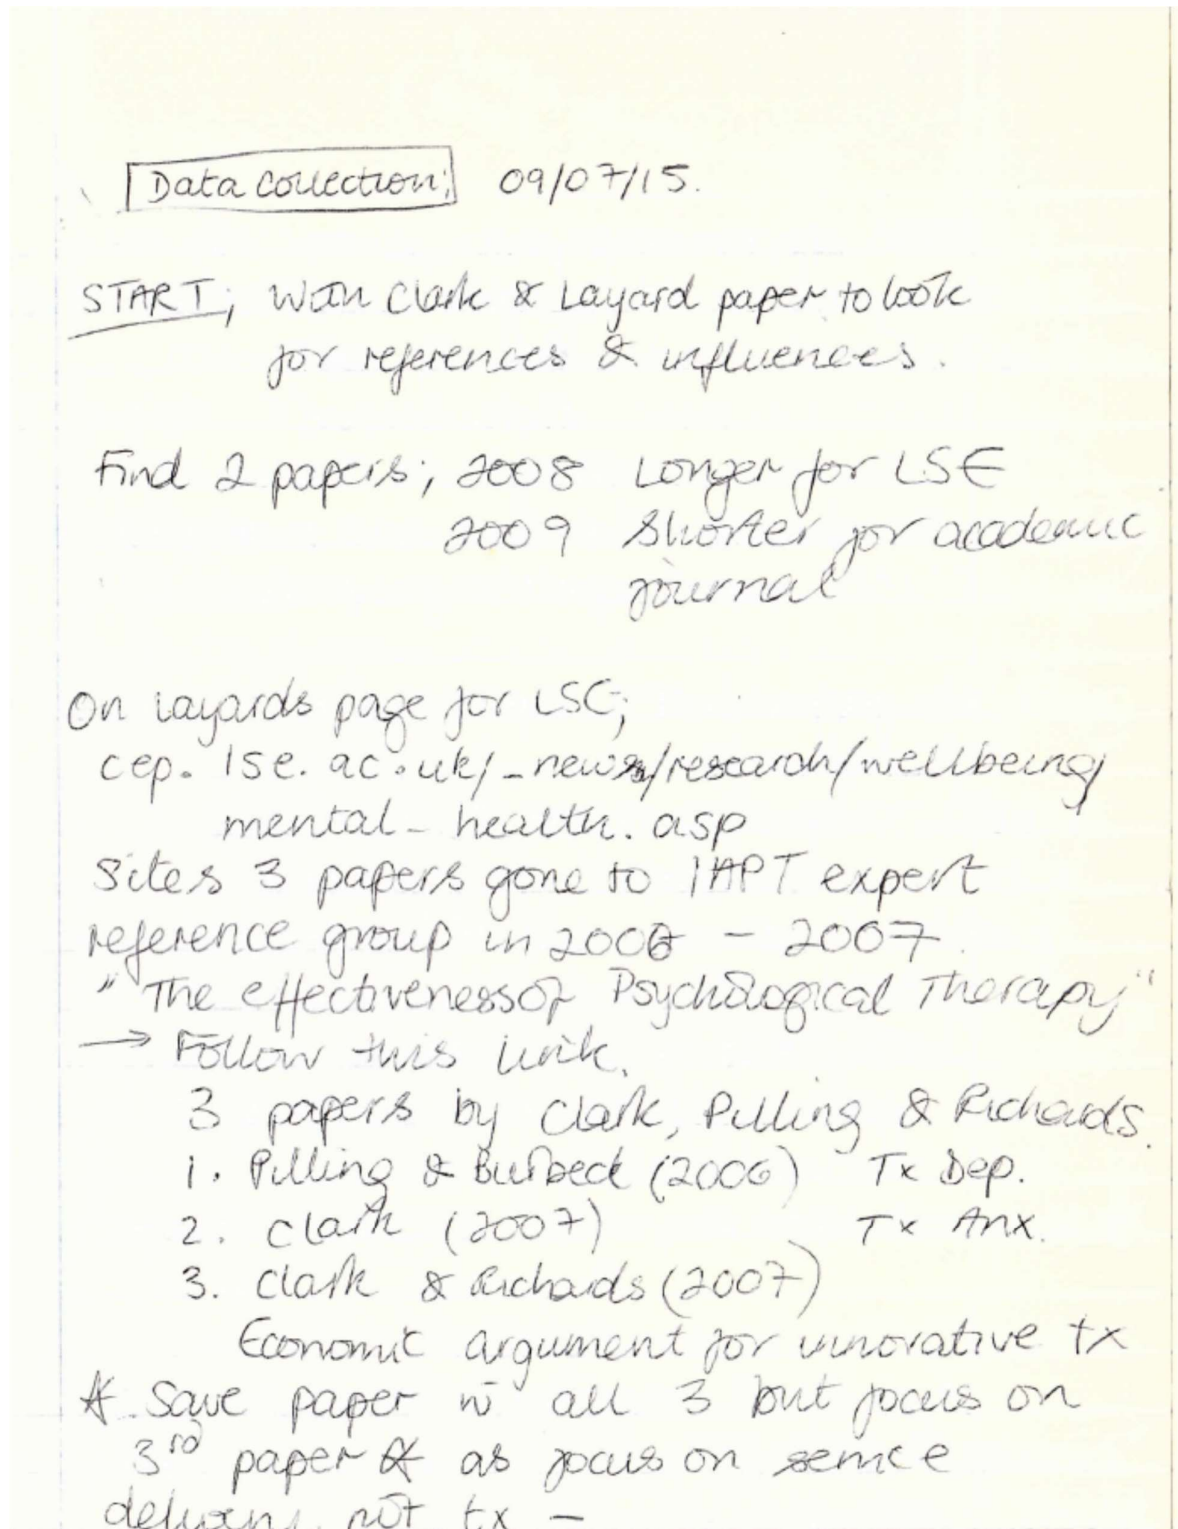 Data Collection; 09/07/15.
START; With Clark & Layard paper to look
for references & influences.
Find 2 papers; 2008 Longer for LSE
2009 Shorter for academic
journal
On Layards page for LSE;
cep.lse.ac.uk/_new/research/wellbeing/
mental_health.asp
Sites 3 papers gone to IAPT expert
reference group in 2006 - 2007.
"The effectiveness of Psychological Therapy"
→ Follow this link.
3 papers by Clark, Pilling & Richards.
1. Pilling & Burbeck (2006) Tx Dep.
2. Clark (2007) Tx Anx.
3. Clark & Richards (2007)
Economic argument for innovative tx
* Save paper w all 3 but focus on
3rd paper as focus on service
delivery not tx -